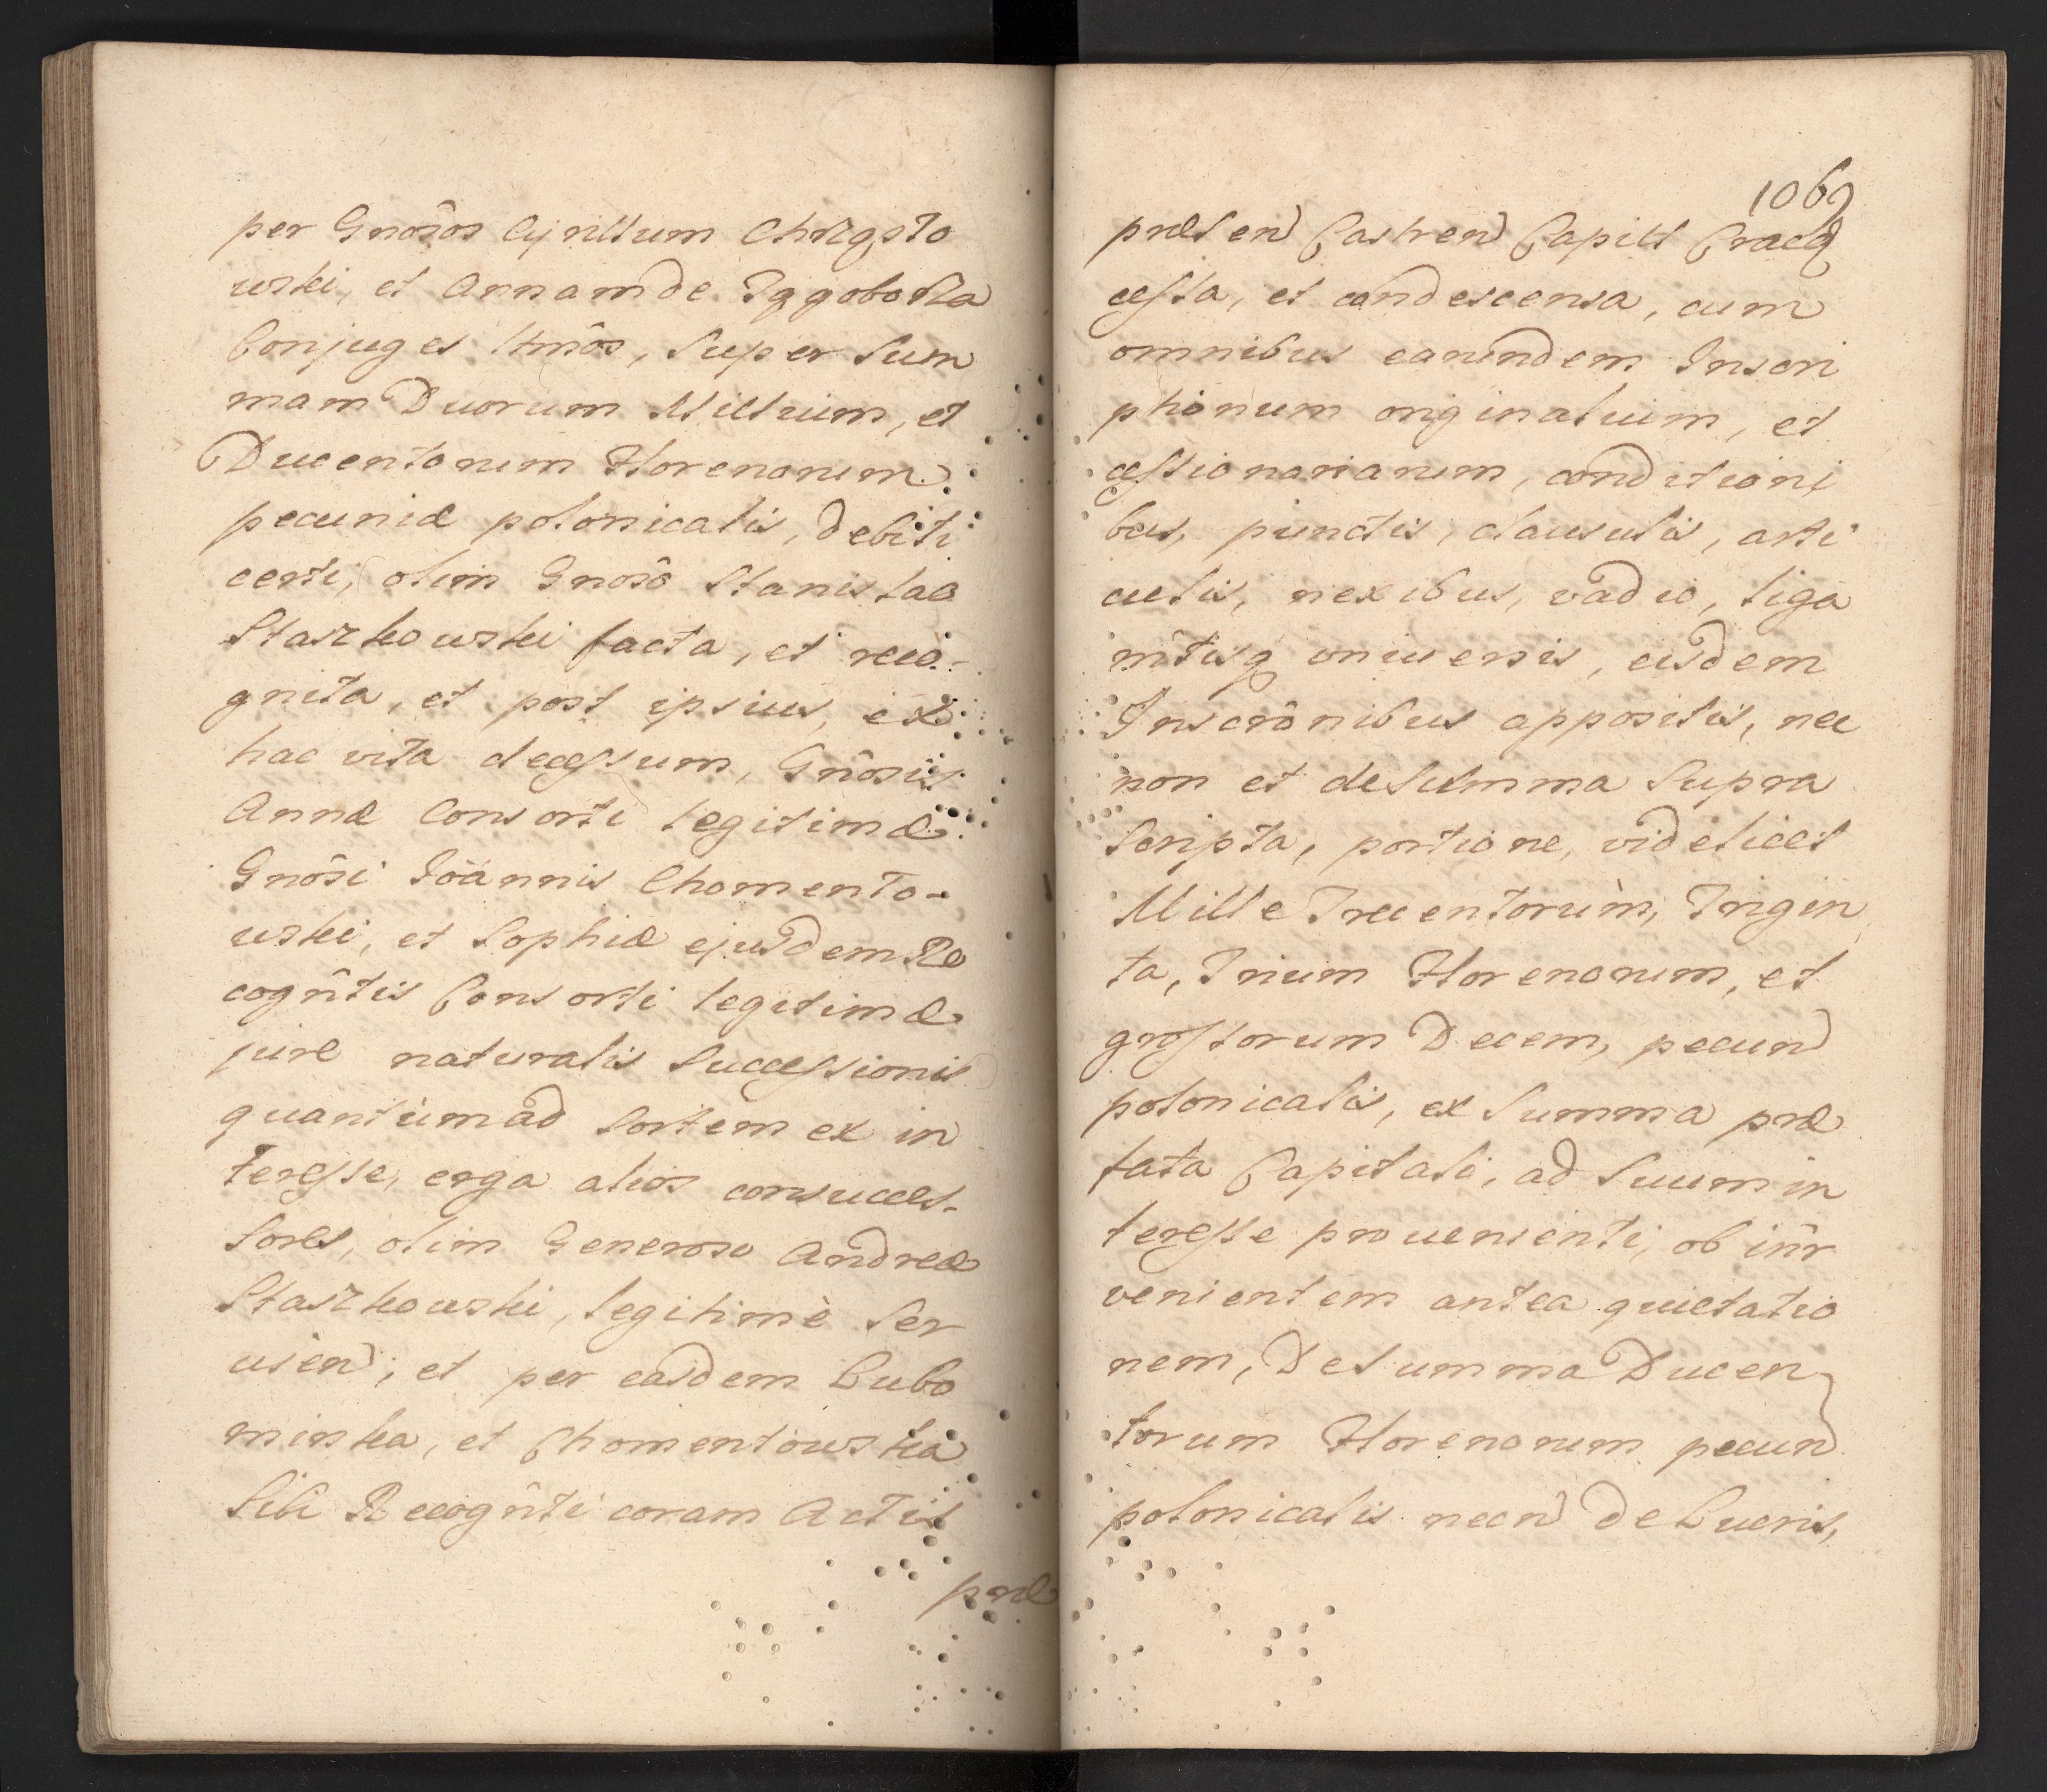 per Gnôsos Cyrillum Chrząsto
wski, et Annam de
Conjuges ltmôs, super Sum
mam Duorum Millium, et
Ducentorum Florenorum
pecuniæ polonicalis, debiti
certi, olim Gnôso Stanislao
Staszkowski facta, et reco-
gnita, et post ipsius, ex
hac vita decessum, Gnôsis
Annæ Consorti legitimæ
Gnôsi Joannis Chomento-
wski, et Sophiæ ejusdem Re
cogñtis Consorti legitimæ
jure naturalis Successionis
quantùm ad Sortem ex in
teresse, erga alios consucces-
sores, olim Generoso Andreæ
Staszkowski, legitimè ser
vien, et per easdem Lubo
minska, et Chomentowska
Sibi Recogñti coram Actis
præ
1069
præsen Castren Capitl Crac
cessa, et condescensa, cum
omnibus earundem Inscri
ptionum originalium, et
cessionariarum, conditioni
bus, punctis, clausulis, arti
culis, nexibus, vadio, liga
mẽtisq universis, eisdem
Inscrônibus appositis, nec
non et de Summa Supra
scripta, portione, videlicet
Mille Trecentorùm, Trigin
ta, Trium Florenorum, et
grossorum Decem, pecun
polonicalis, ex Summa præ
fata Capitali, ad Suum in
teresse provenienti, ob inr̂
venientem antea quietatio
nem, De Summa Ducen
torum Florenorum pecun
polonicalis necn de Lucris,